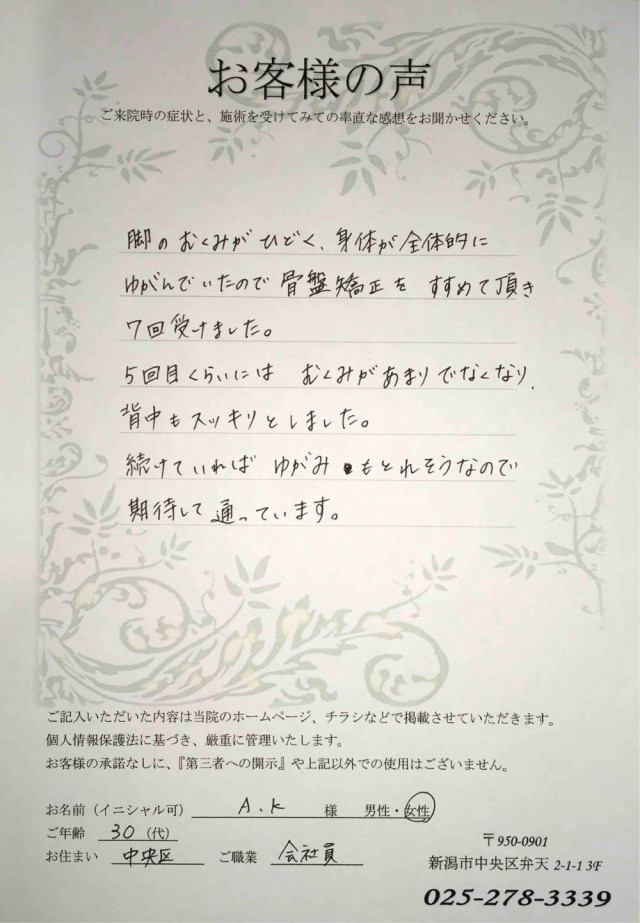 お客様の声
ご来院時の症状と、施術を受けてみての率直な感想をお聞かせください。
脚のむくみがひどく、身体が全体的に
ゆがんでいたので骨盤矯正をすすめて頂き
7回受けました。
5回目くらいには むくみがあまりでなくなり、
背中もスッキリとしました。
続けていれば ゆがみもとれそうなので
期待して通っています。
ご記入いただいた内容は当院のホームページ、チラシなどで掲載させていただきます。
個人情報保護法に基づき、厳重に管理いたします。
お客様の承諾なしに、『第三者への開示』や上記以外での使用はございません。
お名前（イニシャル可） A.K 様 男性・女性
ご年齢 30（代）
お住まい 中央区 ご職業 会社員
〒950-0901
新潟市中央区弁天 2-1-1 3F
025-278-3339